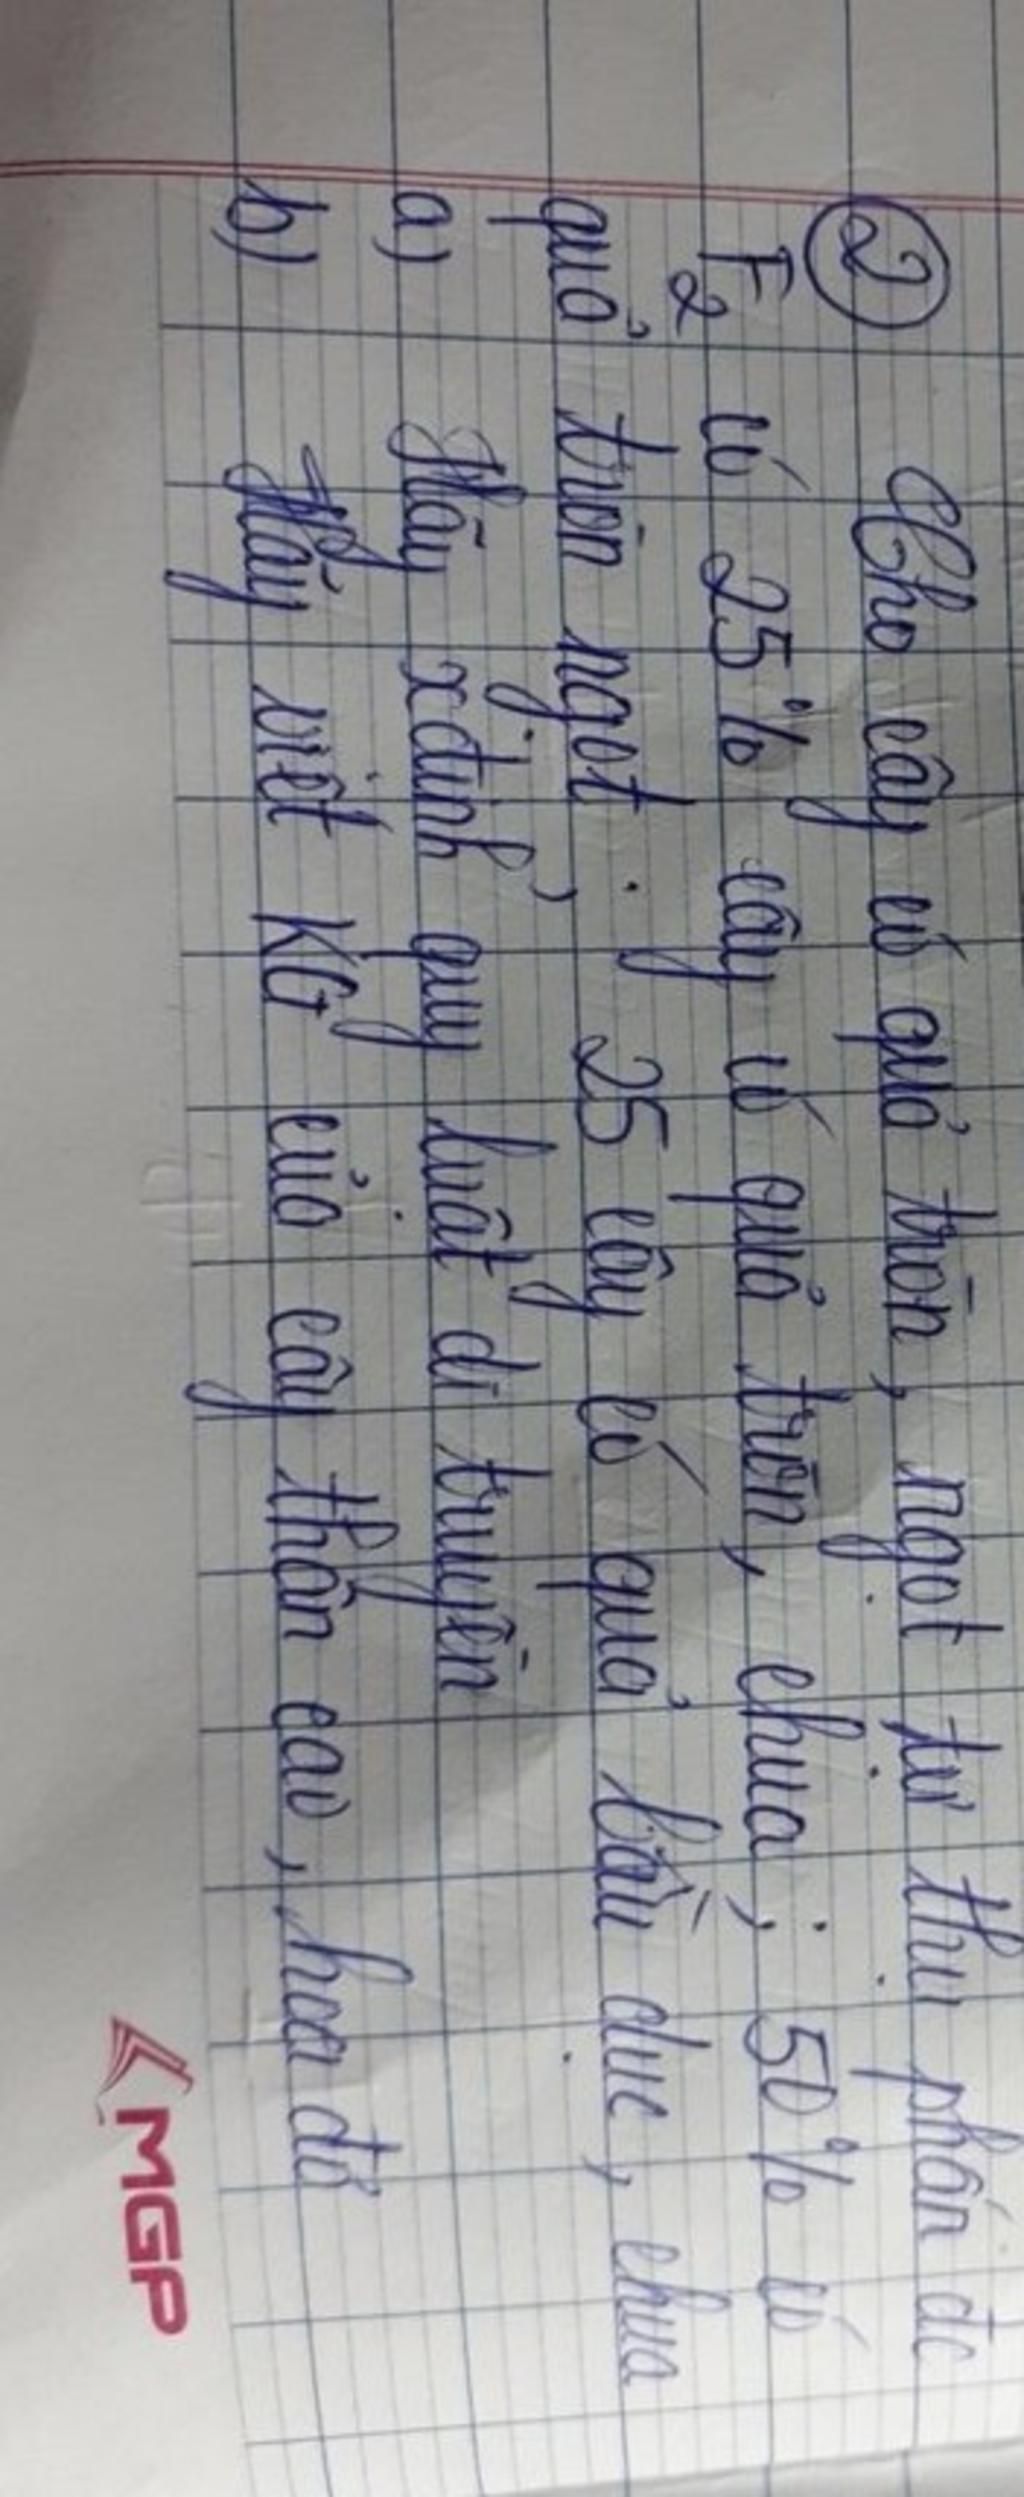 ② Cho cây có quả tròn, ngọt tự thụ phấn đc
F2 có 25% cây có quả tròn, chua; 50% có
quả tròn ngọt; 25 cây có quả bầu dục, chua
a) Hãy xđịnh quy luật di truyền
b) Hãy viết KG của cây thân cao, hoa đỏ
MGP